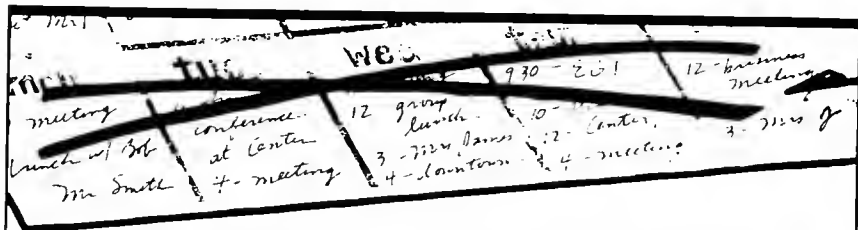 Mr
mon
meeting
Lunch w/ Bob
Mr Smith
tue
conference
at Center
4 - meeting
wed
12 group
lunch
3 - Mrs James
4 - downtown
930 -
10 -
12 - Center
4 - meeting
12 - business
meeting
3 - Mrs J